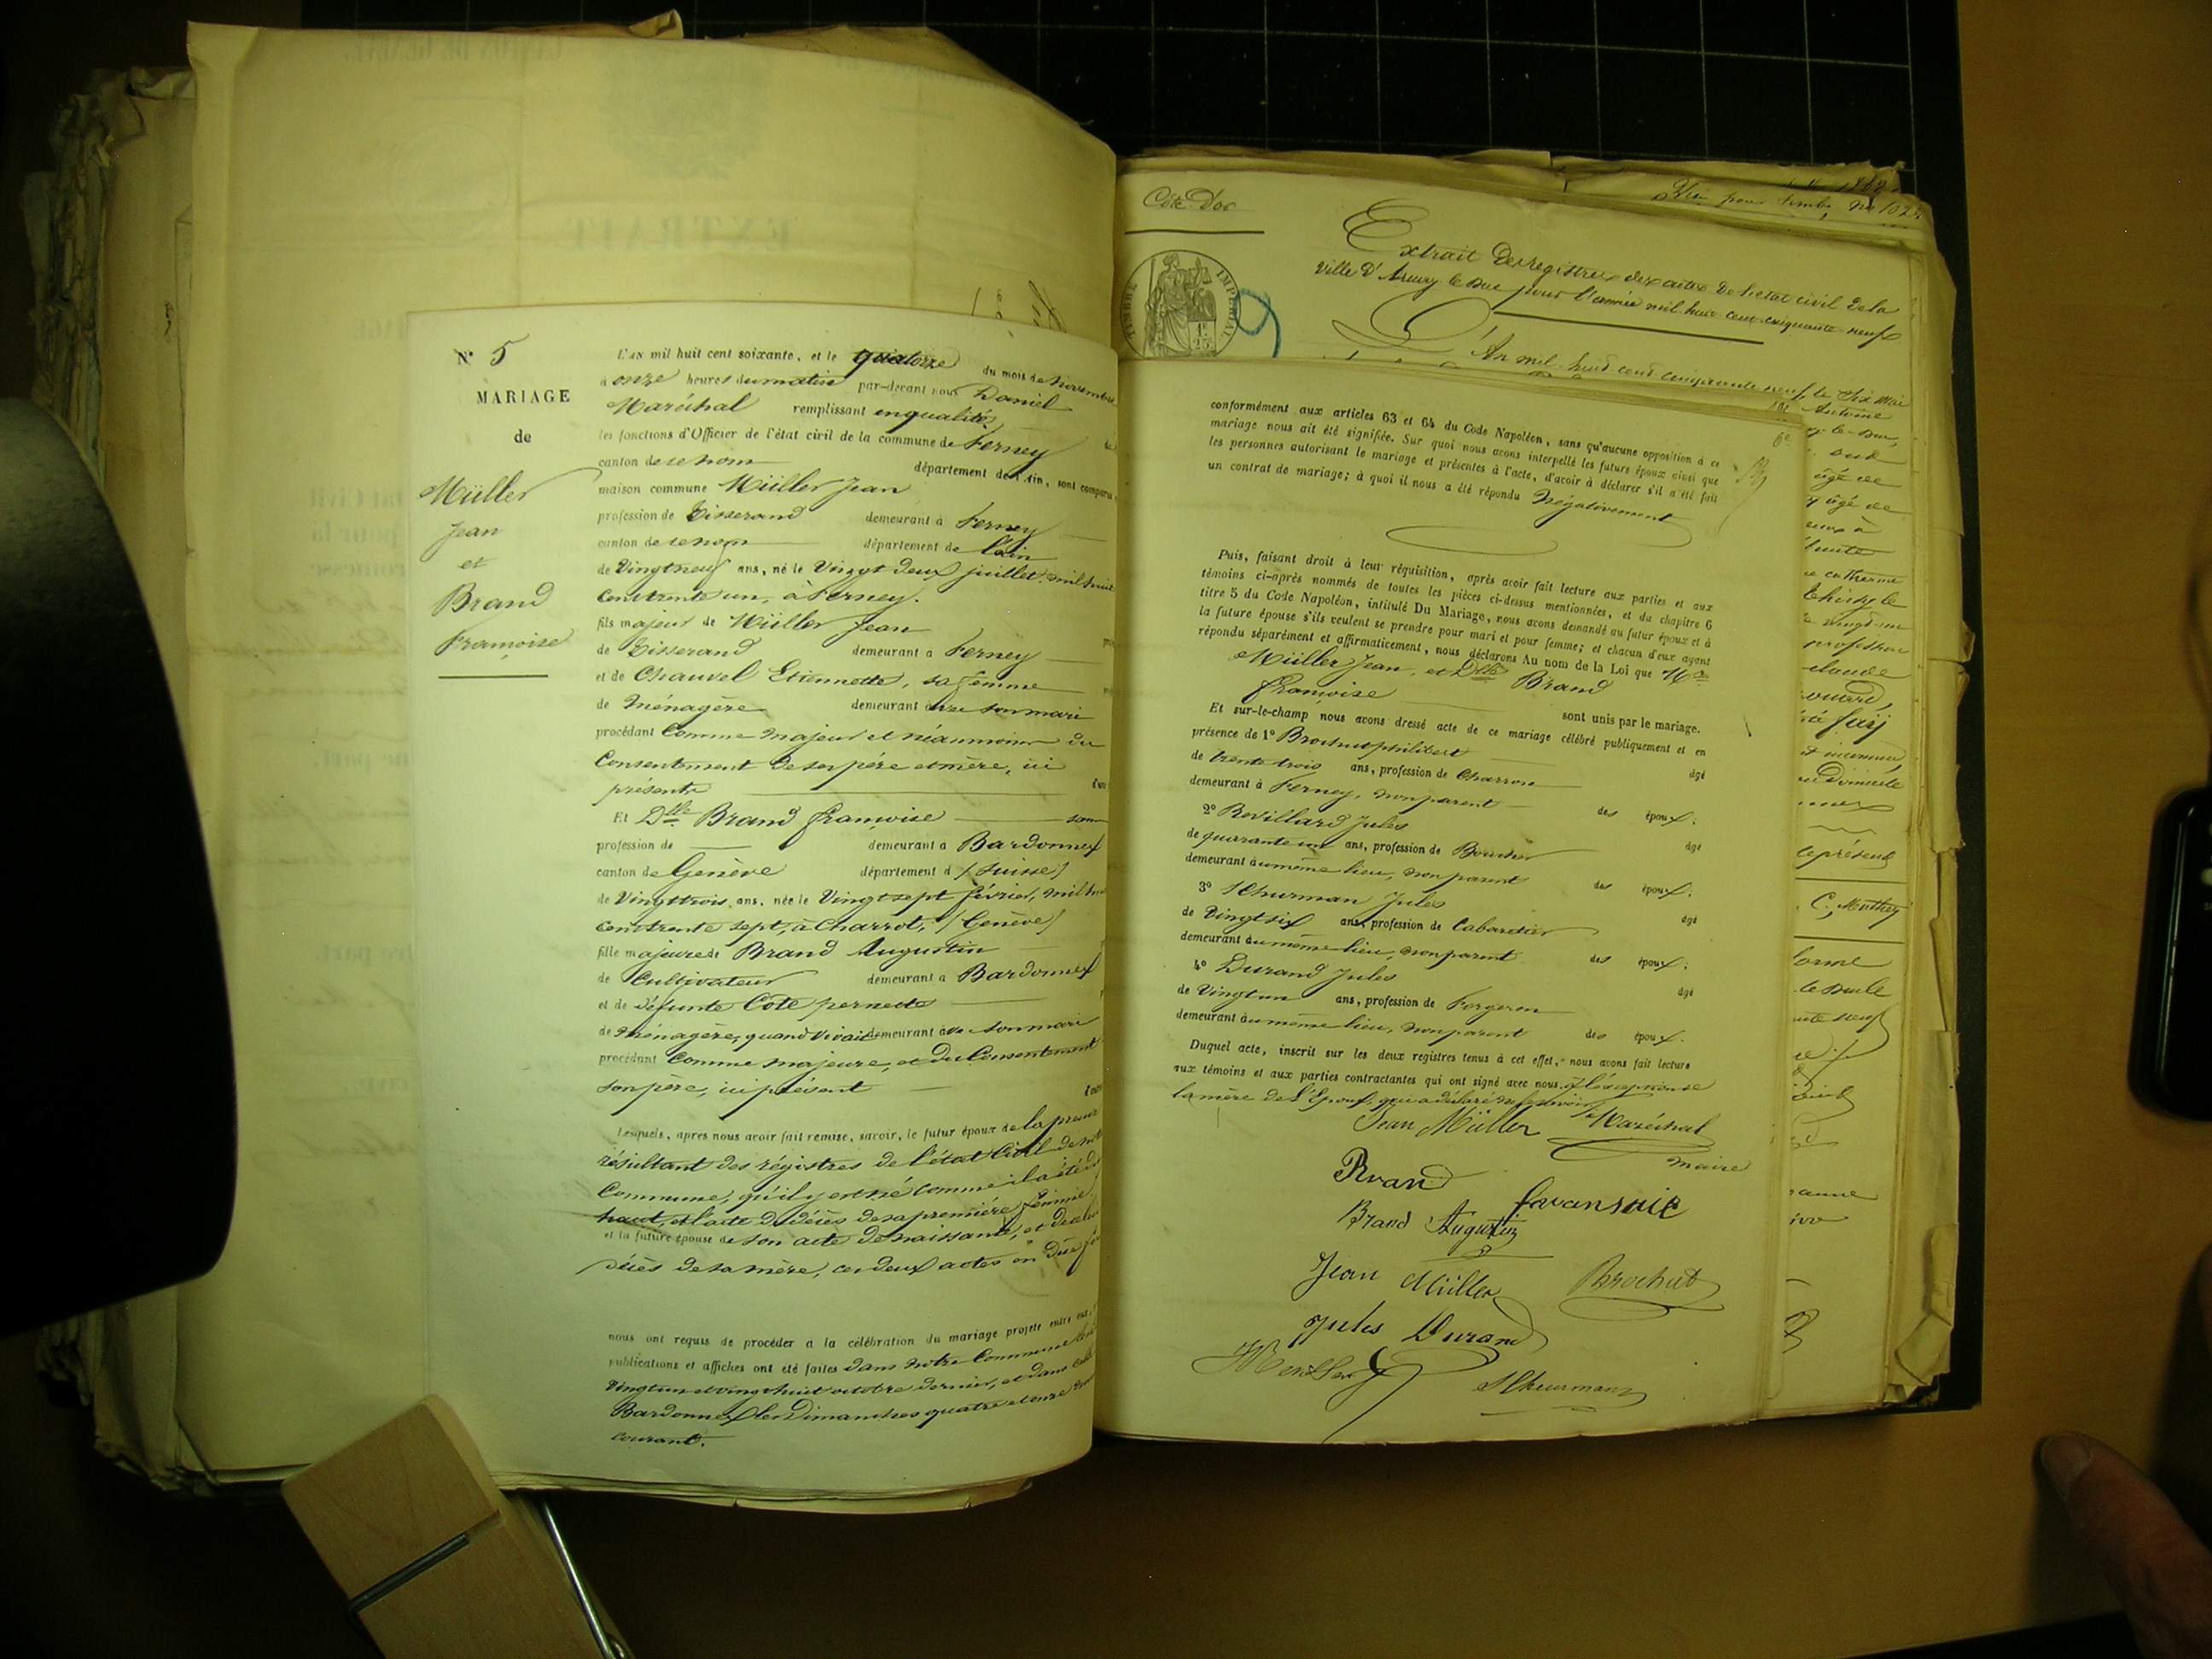 N° 5
MARIAGE
de
Müller
Jean
et
Brand
Françoise
L'AN mil huit cent soixante, et le quatorze du mois de novembre
à onze heures du matin par-devant nous Daniel
Maréchal remplissant en qualité
les fonctions d'Officier de l'état civil de la commune de Ferney
canton de ce nom département de l'Ain, sont comparu
maison commune Müller Jean
profession de Tisserand demeurant à Ferney
canton de ce nom département de l'ain
de Vingt neuf ans, né le Vingt deux juillet mil huit
cent trente un, à Ferney.
fils majeur de Müller Jean
de Tisserand demeurant à Ferney
et de Chauvel Etiennette, sa femme
de Ménagère demeurant avec son mari
procédant Comme majeur et néanmoins du
Consentement de ses père et mère, ici
présents
Et Dlle Brand françoise
profession de demeurant à Bardonnex
canton de Genève département d (Suisse)
de Vingt trois ans, née le Vingt sept février, mil huit
cent trente sept, à Charrot, (Genève)
fille majeure de Brand Augustin
de Cultivateur demeurant à Bardonnex
et de défunte Côte pernette
de Ménagère, quand vivait demeurant avec son mari
procédant Comme majeure, et du Consentement
son père, ici présent
Lesquels, après nous avoir fait remise, savoir, le futur époux de la preuve
résultant des régistres de l'état Civil de notre
Commune, qu'il y est né comme il a été dit
haut, et l'acte de décès de sa première femme
et la future épouse de son acte de naissance, et de celui
décès de sa mère, ces deux actes en due
nous ont requis de procéder à la célébration du mariage projeté entre eux
publications et affiches ont été faites dans notre Commune les
Vingt un et vingt huit octobre dernier, et dans celle
Bardonnex les Dimanches quatre et onze
courant.
Côte-D'or
TIMBRE IMPÉRIAL
Extrait des registres des actes de l'état civil de la
Ville D'Arnay le Duc pour l'année mil huit cent cinquante neuf
L'An mil huit cent cinquante neuf, le six Mai
conformément aux articles 63 et 64 du Code Napoléon, sans qu'aucune opposition à ce
mariage nous ait été signifiée. Sur quoi nous avons interpellé les futurs époux ainsi que
les personnes autorisant le mariage et présentes à l'acte, d'avoir à déclarer s'il a été fait
un contrat de mariage; à quoi il nous a été répondu Négativement
Puis, faisant droit à leur réquisition, après avoir fait lecture aux parties et aux
témoins ci-après nommés de toutes les pièces ci-dessus mentionnées, et du chapitre 6
titre 5 du Code Napoléon, intitulé Du Mariage, nous avons demandé au futur époux et à
la future épouse s'ils veulent se prendre pour mari et pour femme; et chacun d'eux ayant
répondu séparément et affirmativement, nous déclarons Au nom de la Loi que Mr
Müller Jean, et Dlle Brand
françoise sont unis par le mariage.
Et sur-le-champ nous avons dressé acte de ce mariage célébré publiquement et en
présence de 1° Brochut philibert âgé
de trente trois ans, profession de Charron
demeurant à Ferney, non parent des époux.
2° Revillard Jules âgé
de quarante un ans, profession de Boucher
demeurant au même lieu, non parent des époux.
3° Schurman Jules âgé
de Vingt six ans, profession de Cabaretier
demeurant au même lieu, non parent des époux.
4° Durand Jules âgé
de Vingt un ans, profession de Forgeron
demeurant au même lieu, non parent des époux.
Duquel acte, inscrit sur les deux registres tenus à cet effet, nous avons fait lecture
aux témoins et aux parties contractantes qui ont signé avec nous à l'exception de
la mère de l'Epoux, qui a déclaré ne le savoir
Jean Müller Maréchal
maire
Brand
Brand Augustin
Jean Müller Brochut
Jules Durand
Scheurmann